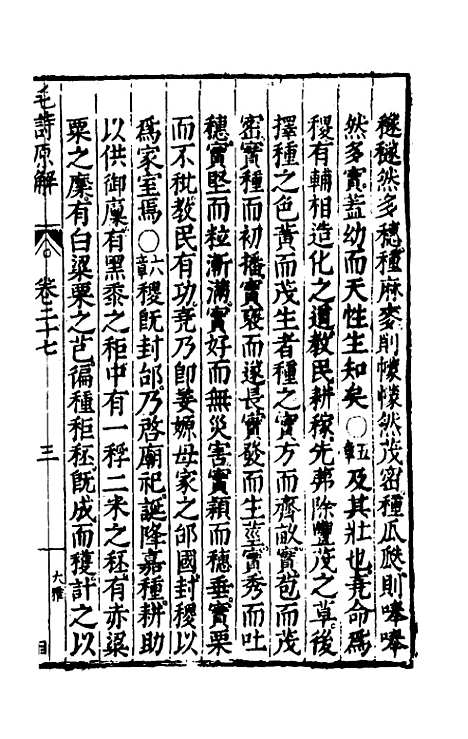 穟穟然多穗種麻麥則幪幪然茂密種瓜瓞則唪唪
然多實蓋幼而天性生知矣○五章及其壯也堯命爲
稷有輔相造化之道教民耕稼先茀除豐茂之草後
擇種之色黃而茂生者種之實方而齊畝實苞而茂
密實種而初播實褎而遂長實發而生莖實秀而吐
穗實堅而粒漸滿實好而無災害實穎而穗垂實栗
而不秕教民有功堯乃卽姜嫄母家之邰國封稷以
爲家室焉○六章稷旣封邰乃啓廟祀誕降嘉種耕助
以供御廩有黑黍之秬中有一稃二米之秠有赤粱
粟之穈有白粱粟之芑徧種秬秠旣成而穫計之以
毛詩原解
卷二十七
三
大雅